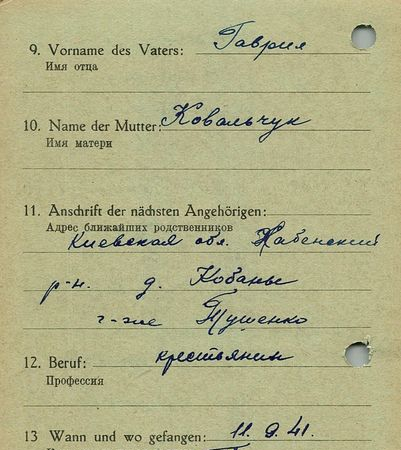 9. Vorname des Vaters: Гаврил
Имя отца
10. Name der Mutter: Ковальчук
Имя матери
11. Anschrift der nächsten Angehörigen:
Адрес ближайших родственников
Киевская обл. Хабенский
р-н. д. Кобанье
г-же Тушенко
12. Beruf: крестьянин
Профессия
13 Wann und wo gefangen: 11. 9. 41.